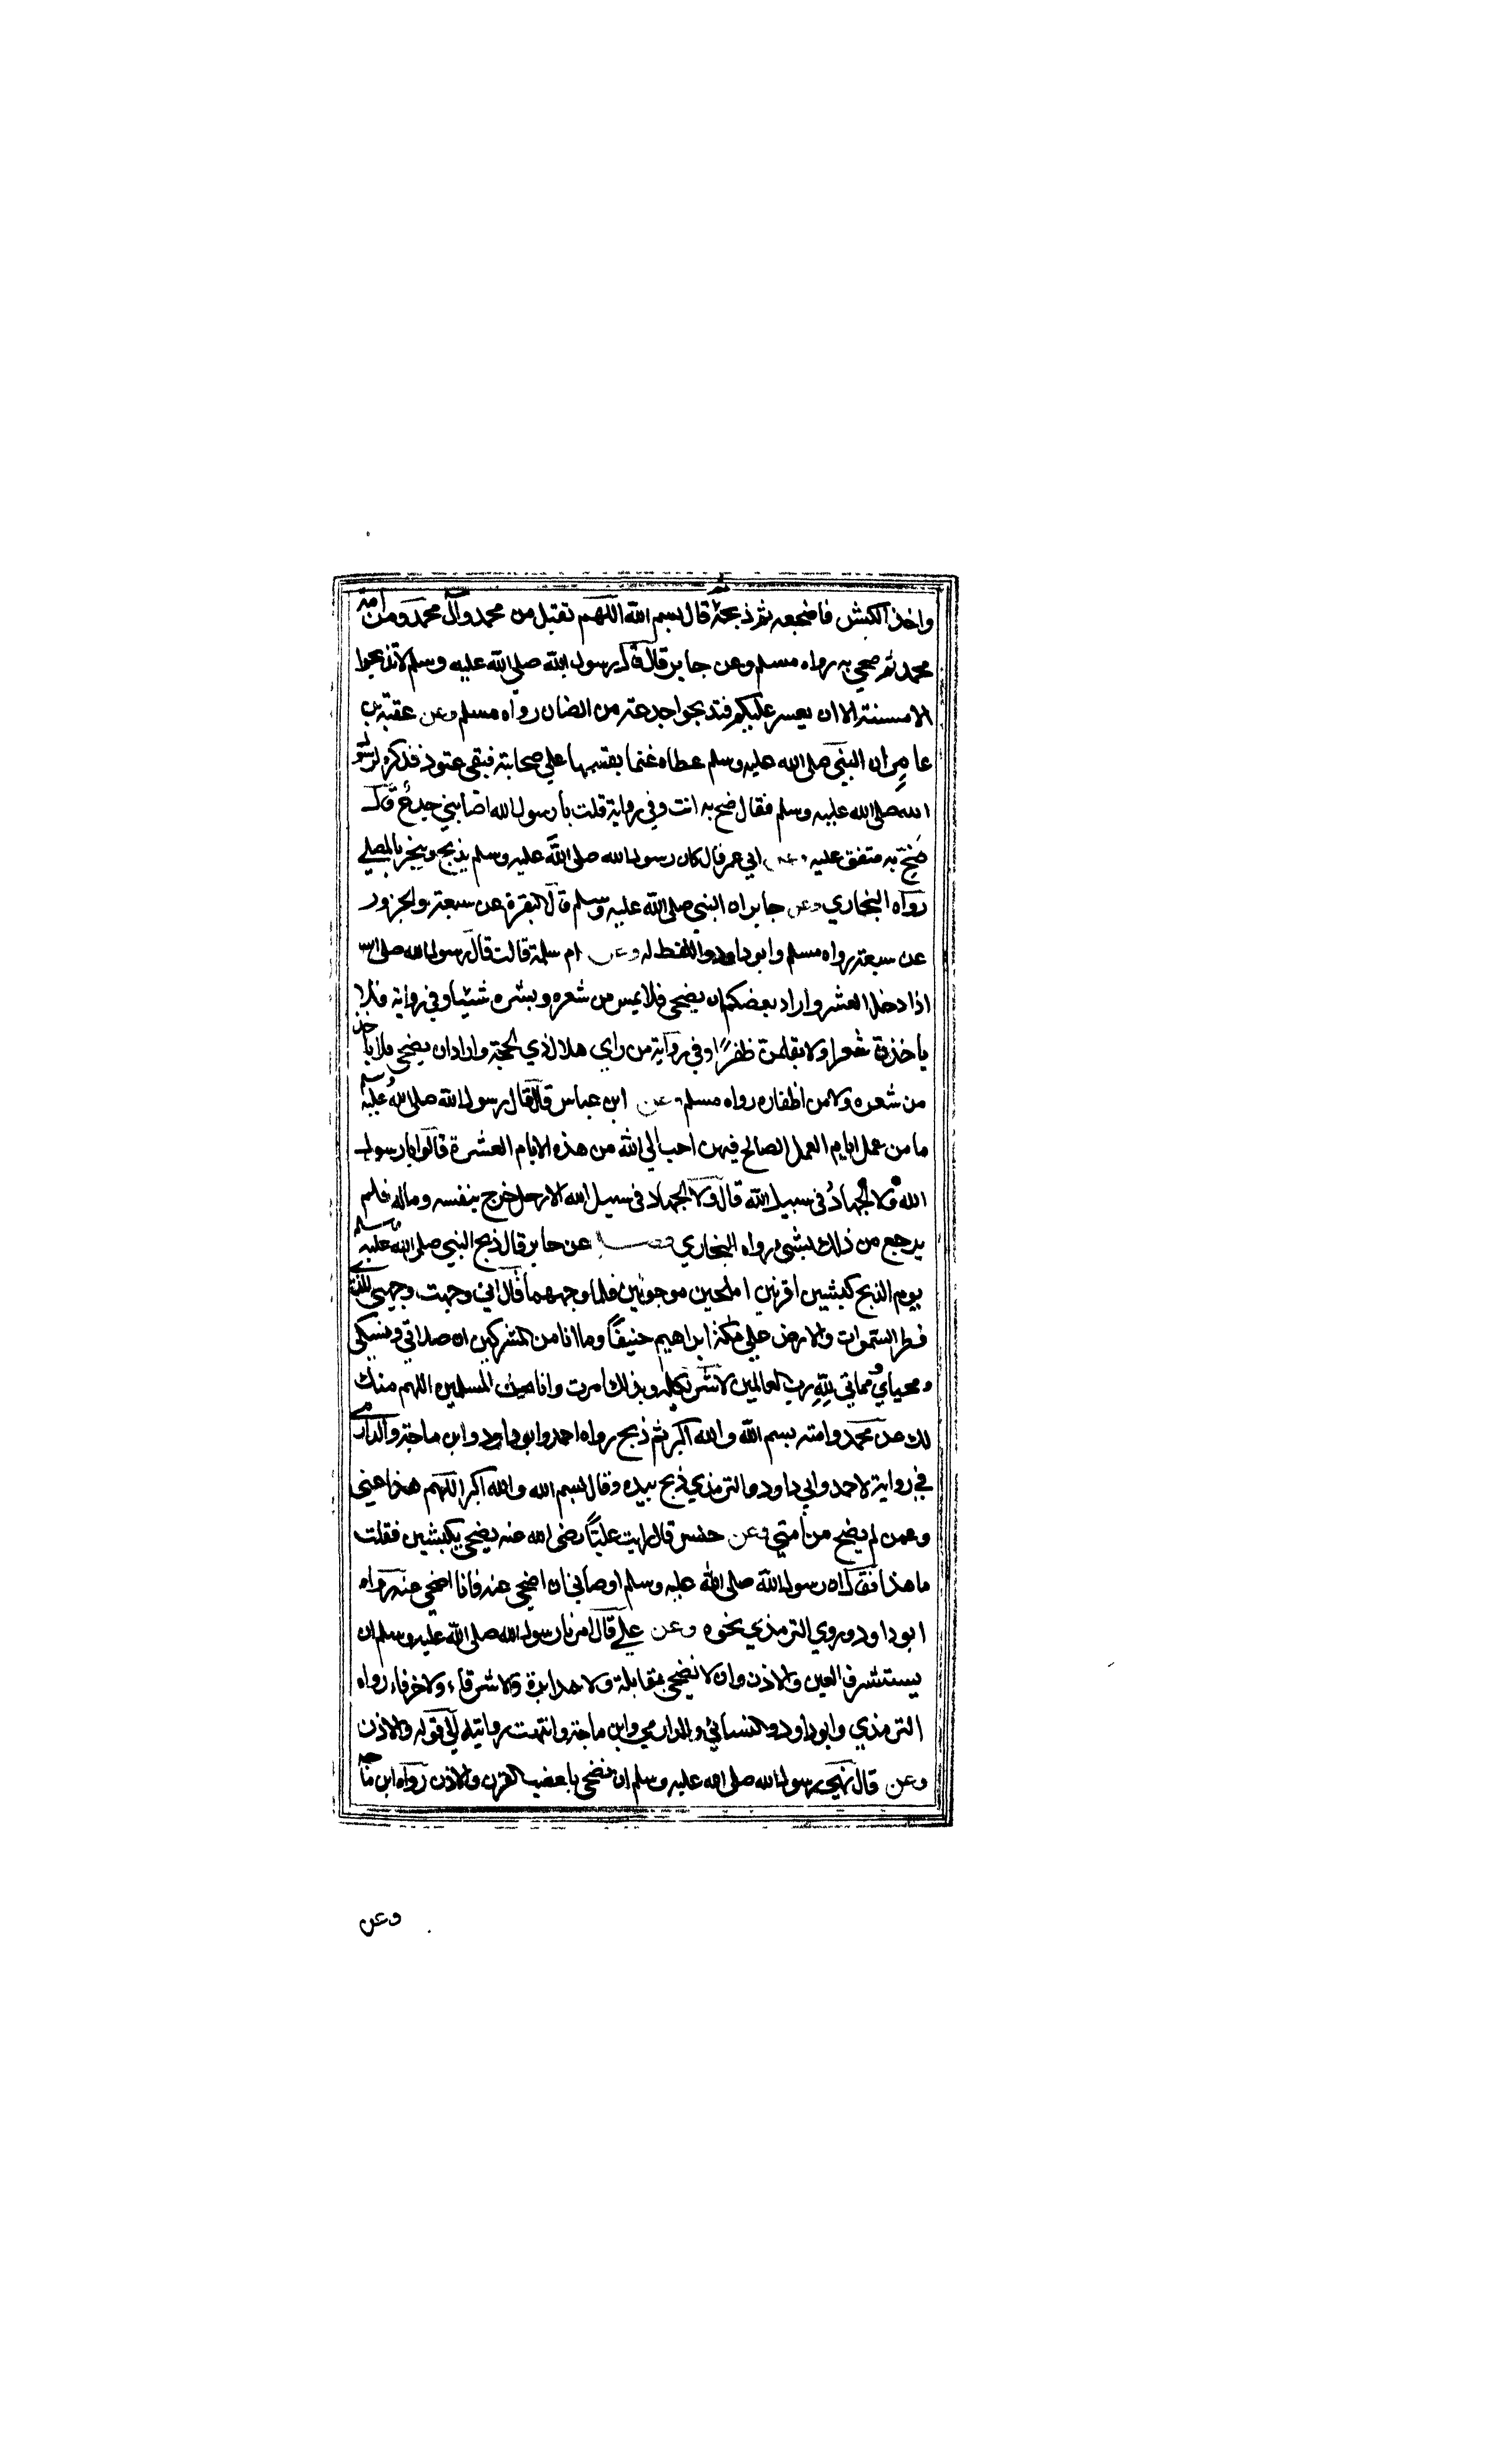 واخذ الكبش فاضجعه ثم ذبحه ثم قال بسم الله اللهم تقبل من محمد وآل محمد ومن امة
محمد ثم ضحي به رواه مسلم وعن جابر قال قال رسول الله صلى الله عليه وسلم لا تذبحوا
الا مسنة الا ان يعسر عليكم فتذبحوا جذعة من الضان رواه مسلم وعن عقبة بن
عامر ان النبي صلى الله عليه وسلم عطاه غنما يقسمها علي صحابته فبقي عتود فذكره لرسول
الله صلى الله عليه وسلم فقال ضح به انت وفي رواية قلت يا رسول الله اصابني جذع قال
ضح به متفق عليه وعن ابي عمر قال كان رسول الله صلى الله عليه وسلم يذبح وينحر بالمصلي
رواه البخاري وعن جابر ان النبي صلى الله عليه وسلم قال البقرة عن سبعة والجزور
عن سبعة رواه مسلم وابو داود واللفظ له وعن ام سلمة قالت قال رسول الله صلى الله
اذا دخل العشر واراد بعضكم ان يضحي فلا يمس من شعره وبشره شيئا وفي رواية فلا
ياخذن شعرا ولا يقلمن ظفرًا وفي رواية من راي هلال ذي الحجة واراد ان يضحي فلا ياخذ
من شعره ولا من اظفاره رواه مسلم وعن ابن عباس قال قال رسول الله صلى الله عليه وسلم
ما من عمل ايام العمل الصالح فيهن احب الي الله من هذه الايام العشرة قالوا يا رسول
الله ولا الجهادُ في سبيل الله قال ولا الجهاد في سبيل الله الا رجل خرج بنفسه وماله فلم
يرجع من ذلك بشي رواه البخاري فصل عن جابر قال ذبح النبي صلى الله عليه وسلم
يوم الذبح كبشين اقرنين املحين موجوئين فلما وجههما قال اني وجهت وجهي للذي
فطر السموات والارض علي ملة ابراهيم حنيفًا وما انا من المشركين ان صلاتي ونسكي
ومحياي ومماتي لله رب العالمين لا شريك له وبذلك امرت وانا من المسلمين اللهم منك
لك عن محمد وامته بسم الله والله اكبر ثم ذبح رواه احمد وابو داود وابن ماجة والدارمي
في رواية لاحمد وابي داود والترمذي ذبح بيده وقال بسم الله والله اكبر اللهم هذا عني
وعمن لم يضح من امتي وعن حنش قال رايت عليًا رضى الله عنه يضحي بكبشين فقلت
ما هذا فقال ان رسول الله صلى الله عليه وسلم اوصاني ان اضحي عنه فانا اضحي عنه رواه
ابو داود وروي الترمذي نحوه وعن علي قال امرنا رسول الله صلى الله عليه وسلم ان
يستشرف العين والاذن وان لا نضحي بمقابلة ولا مدابرة ولا شرقاء ولا خرقاء رواه
الترمذي وابو داود والنسائي والدارمي وابن ماجة وانتهت روايته الي قوله والاذن
وعن قال نهي رسول الله صلى الله عليه وسلم ان نضحي باعضب القرن والاذن رواه ابن ماجه
وعن